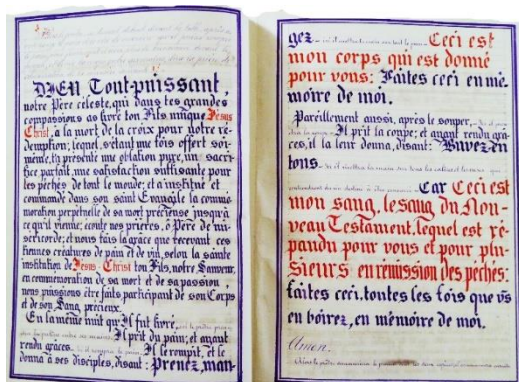 DIEU Tout-puissant,
notre Père céleste, qui dans tes grandes
compassions as livré ton Fils unique Jesus
Christ, a la mort de la croix pour notre ré-
demption; lequel, s'étant une fois offert soi-
même, t'a présenté une oblation pure, un sacri-
fice parfait, une satisfaction suffisante pour
les péchés de tout le monde; et a institué et
commandé dans son saint Evangile la commé-
moration perpétuelle de sa mort précieuse jusqu'à
ce qu'il vienne; écoute nos prieres, ô Père de mi-
sericorde; et nous fais la grâce que recevant ces
tiennes créatures de pain et de vin, selon la sainte
institution de Jesus-Christ ton Fils, notre Sauveur,
en commemoration de sa mort et de sa passion,
nous puissions être faits participans de son Corps
et de son Sang précieux.
En la même nuit qu'Il fut livré,
Il prit du pain; et ayant
rendu grâces, Il le rompit, et le
donna à ses disciples, disant: Prenez, man-
gez. Ceci est
mon corps qui est donné
pour vous: Faites ceci en mé-
moire de moi.
Pareillement aussi, après le souper,
Il prit la coupe; et ayant rendu grâ-
ces, il la leur donna, disant: Buvez-en
tous.
Car Ceci est
mon sang, le sang du Nou-
veau Testament, lequel est ré-
pandu pour vous et pour plu-
sieurs en rémission des péchés:
faites ceci, toutes les fois que vs
en boirez, en mémoire de moi.
Amen.